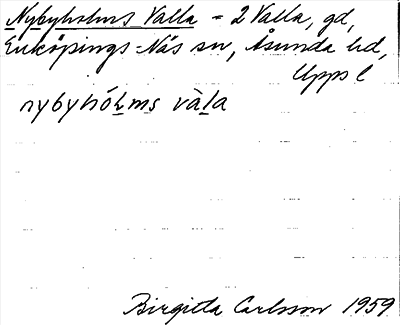 Nybyholms Valla = 2 Valla, gd,
Enköpings-Näs sn, Åsunda hd,
Upps l
nybyhóḷms vàḷa
Birgitta Carlsson 1959